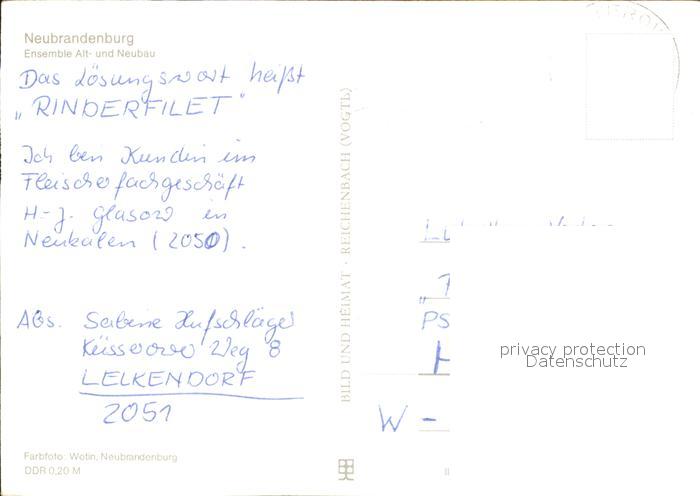 Neubrandenburg
Ensemble Alt- und Neubau
Das Lösungswort heißt
„RINDERFILET"
Ich bin Kundin im
Fleischerfachgeschäft
H-J. Glasow in
Neukalen (2050).
Abs. Sabine Hufschläger
Küsserower Weg 8
LELKENDORF
2051
Farbfoto: Wotin, Neubrandenburg
DDR 0,20 M
BILD UND HEIMAT · REICHENBACH (VOGTL)
PS
W -
privacy protection
Datenschutz